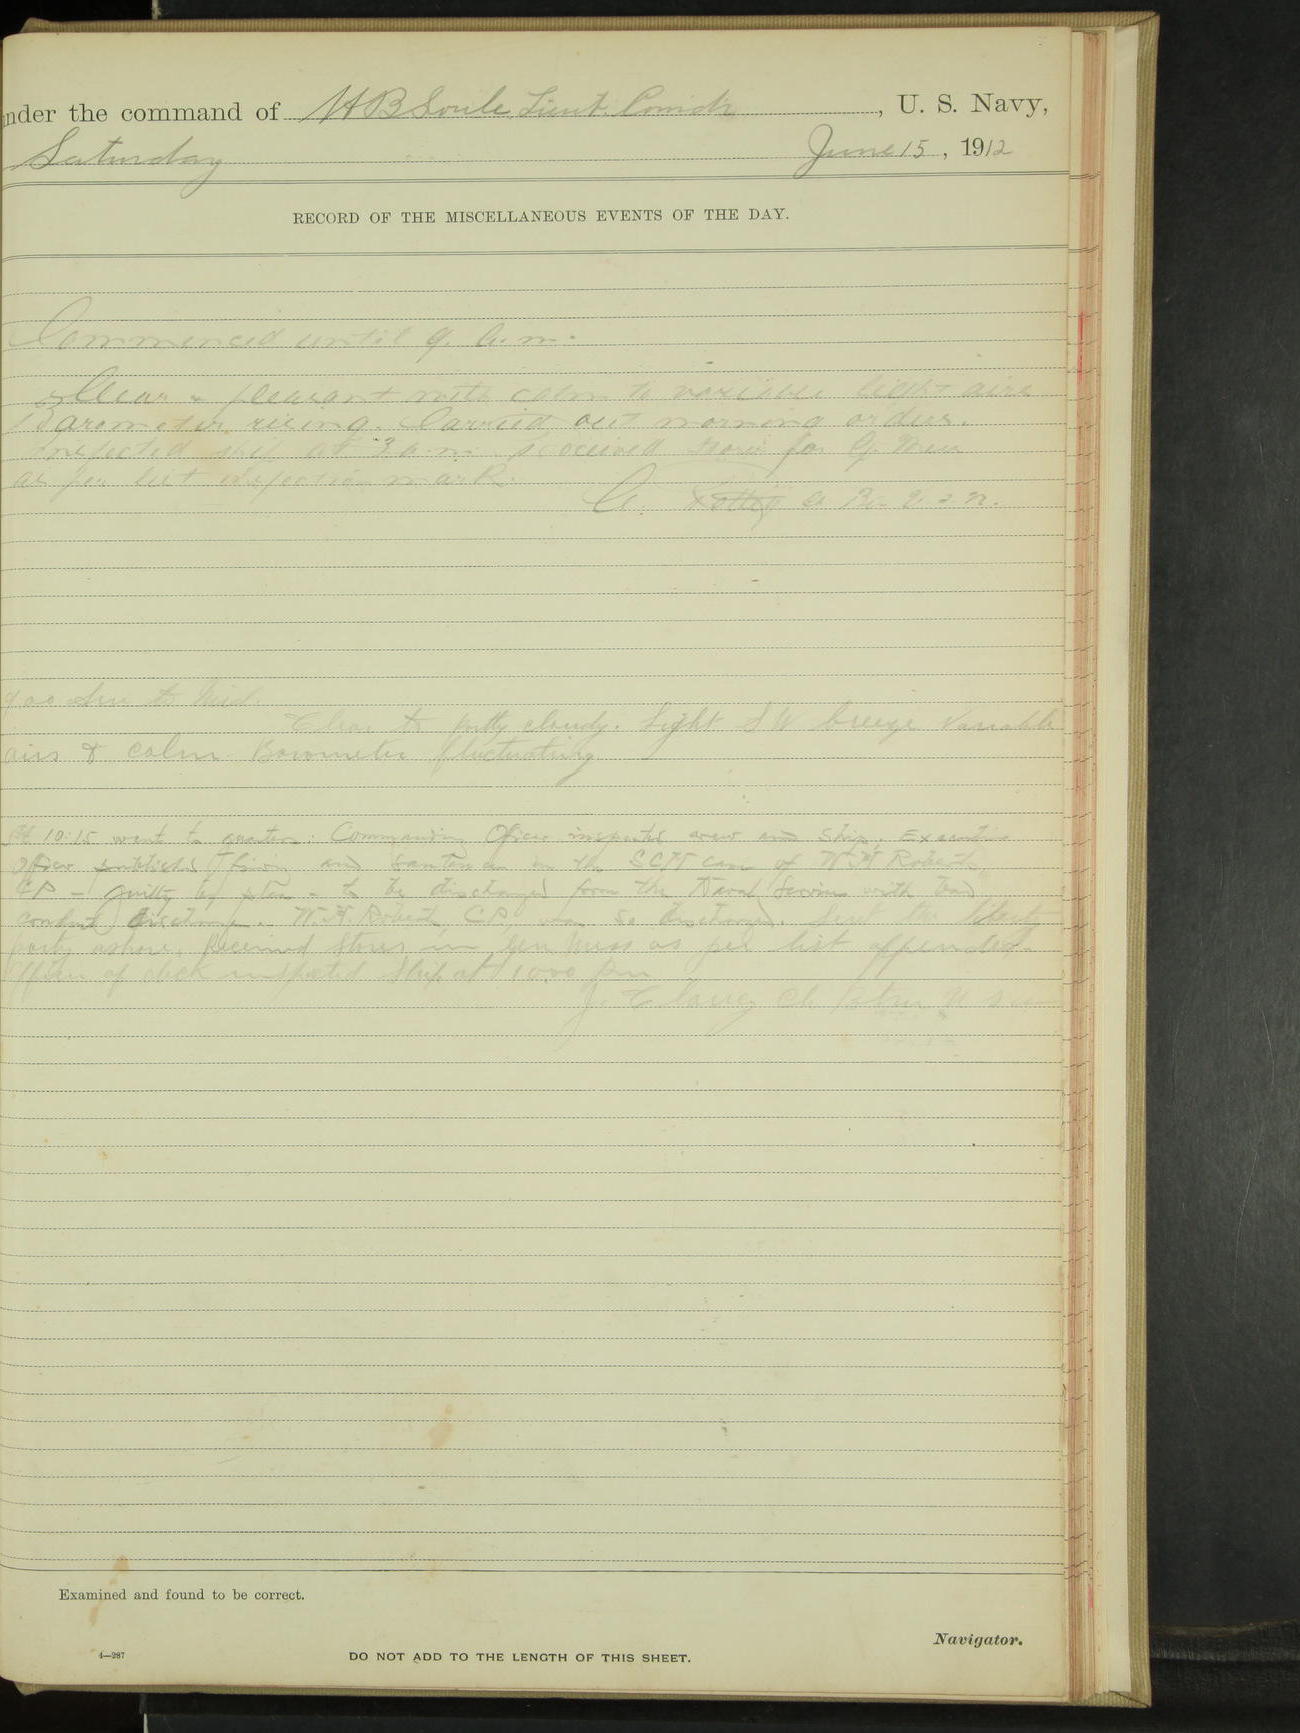 under the command of H B Soule Lieut. Comdr, U. S. Navy,
Saturday June 15, 1912
RECORD OF THE MISCELLANEOUS EVENTS OF THE DAY.
Commenced until 9. a.m.
Clear & pleasant with calm to variable light airs
Barometer rising. Carried out morning orders.
Inspected ship at received for G. Mess
as per list inspection mark.
9 00 to Mid.
Clear to partly cloudy. Light SW breeze variable
airs & calm Barometer fluctuating
At 10:15 went to quarters: Commanding Officer inspected crew and ship. Executive
Officer published finding and sentence in the SCM case of W.H. Roberts
CP - guilty by plea - to be discharged from the Naval Service with bad
conduct discharge. W.H. Roberts, C.P. was so discharged. Sent the liberty
party ashore. Received stores in Gen Mess as per list appended.
Officer of deck inspected ship at 1000 pm
J. Clancy Ch Btsn U S N
Examined and found to be correct.
Navigator.
4—287
DO NOT ADD TO THE LENGTH OF THIS SHEET.